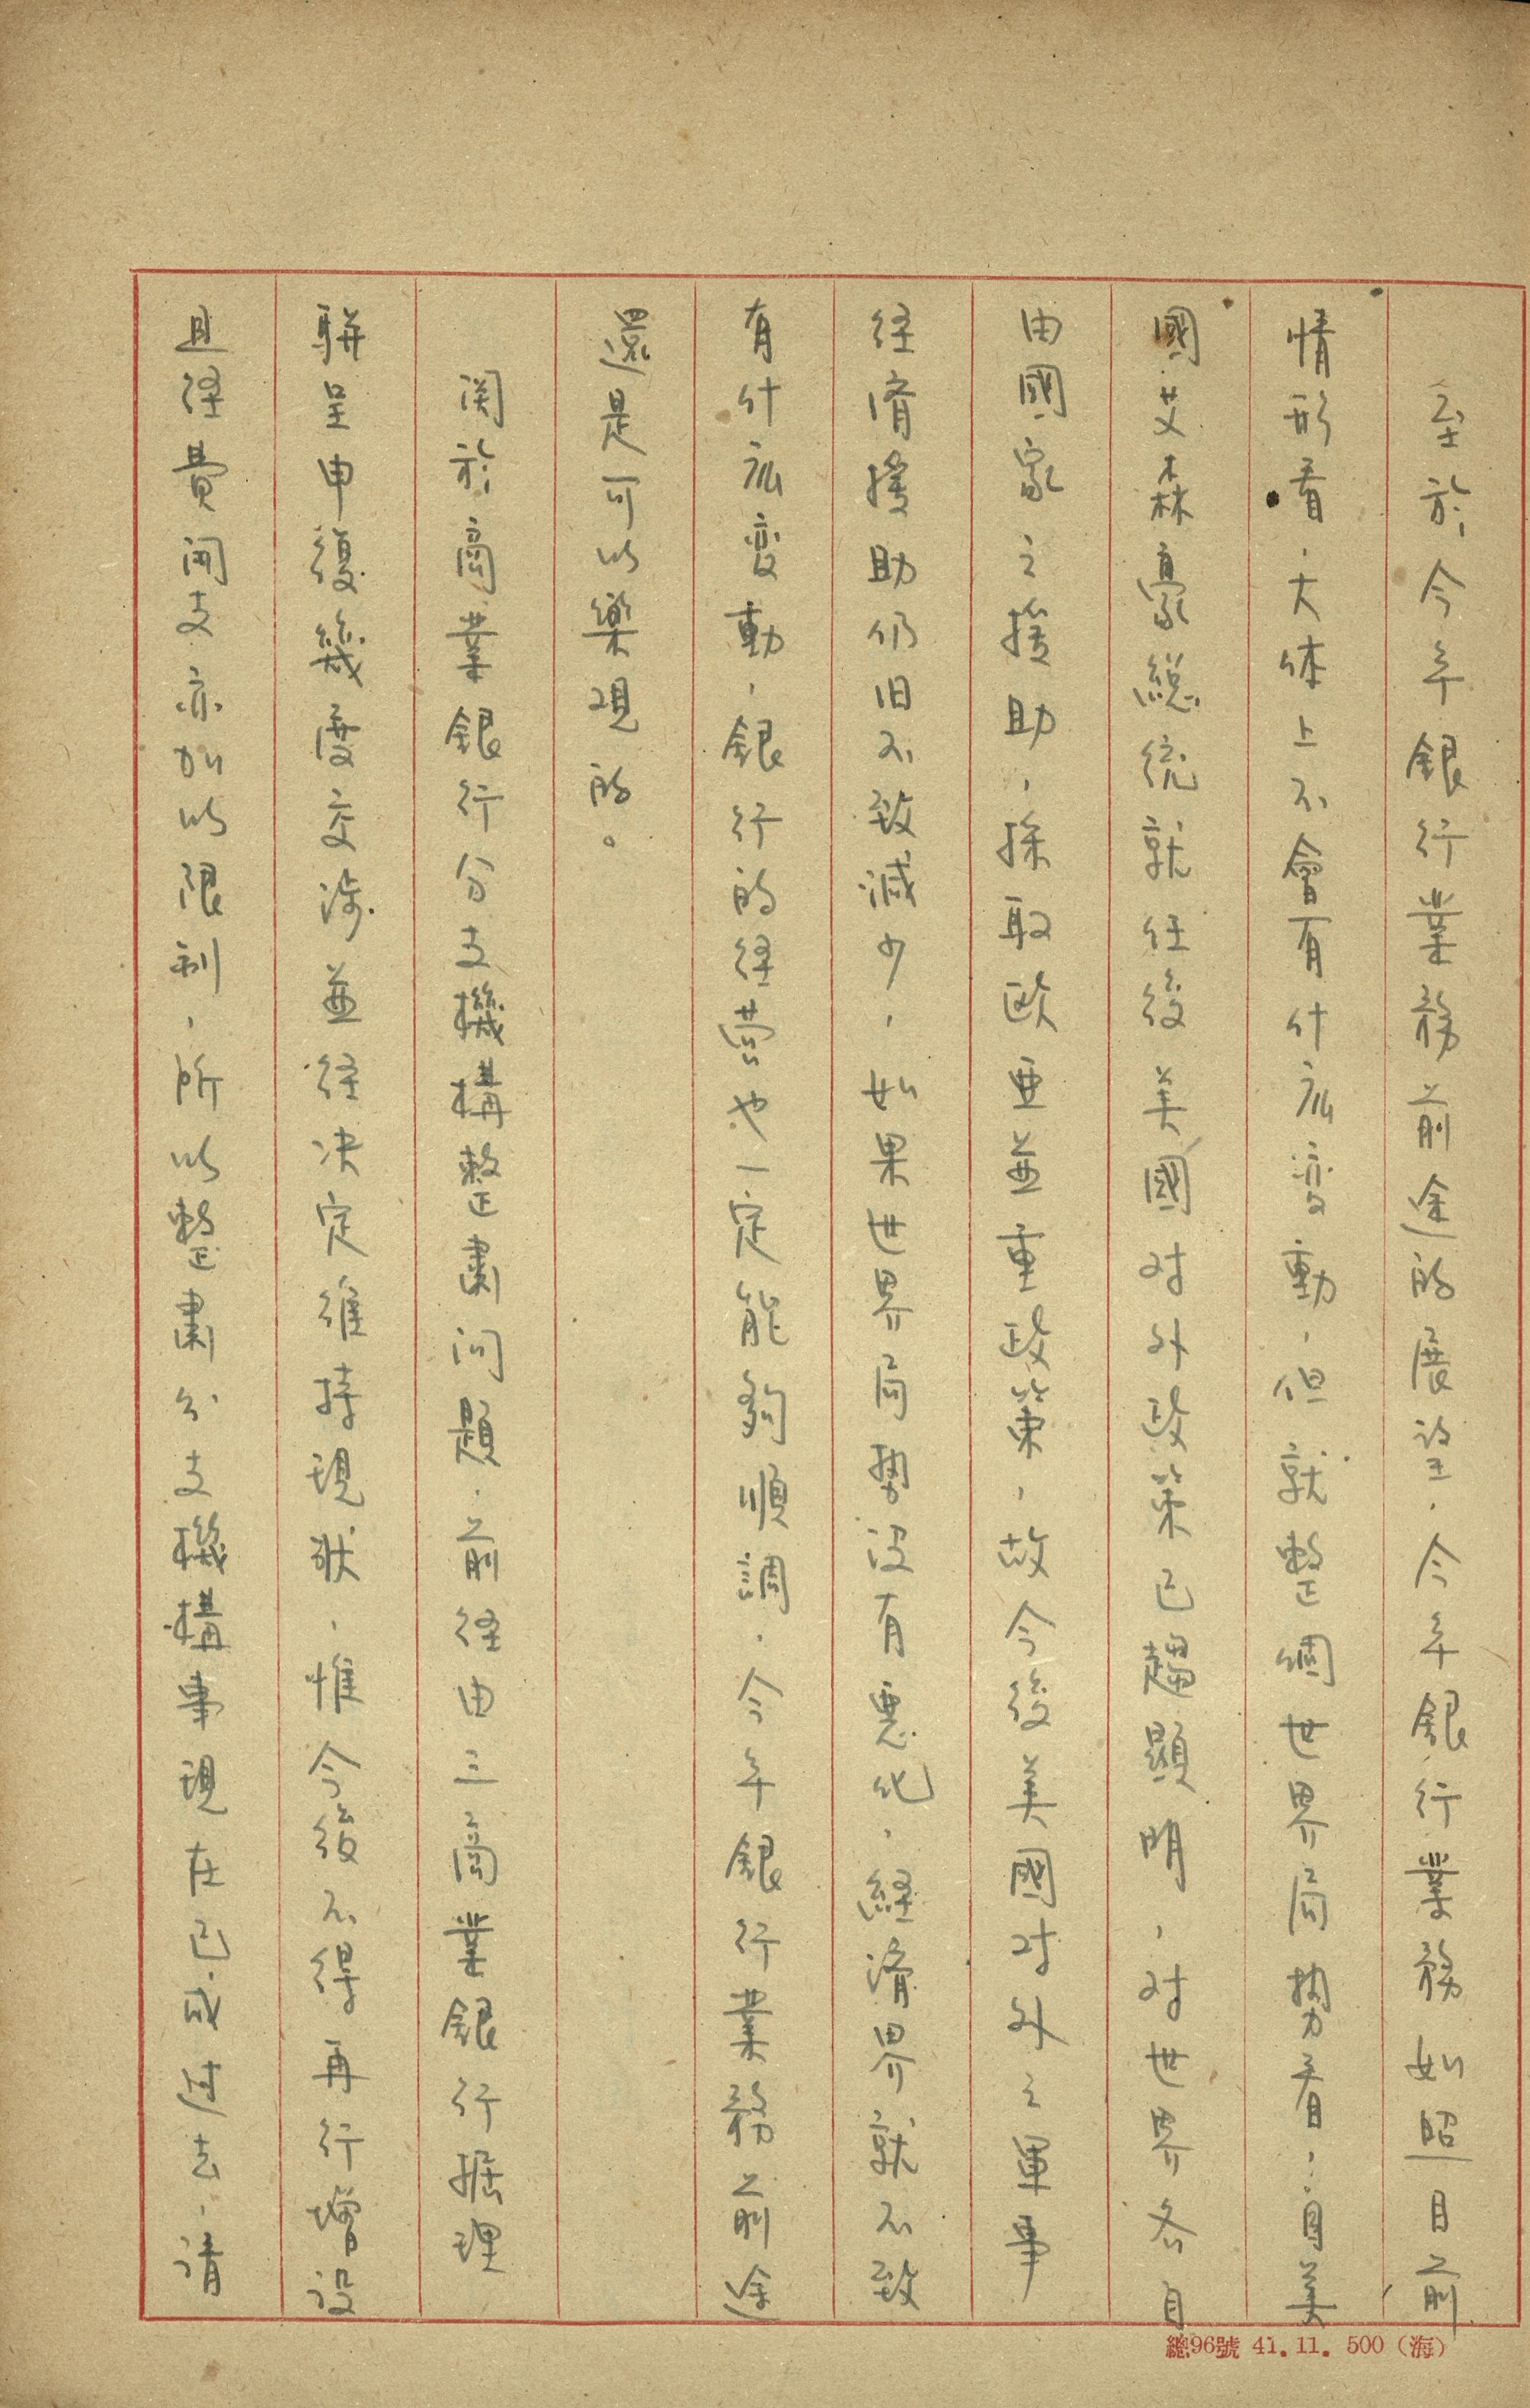 至於今年銀行業務前途的展望，今年銀行業務如照目前
情形看，大体上不會有什庅変動，但就整個世界局势看，自美
國艾森豪総統就任後美國対外政策已趨顕明，対世界各自
由國家之援助，採取欧亜並重政策，故今後美國対外之軍事
径済援助仍旧不致減少，如果世界局势没有悪化，経済界就不致
有什庅変動，銀行的径营也一定能夠順調，今年銀行業務前途
還是可以樂观的。
関於商業銀行分支機構整粛问題，前径由三商業銀行據理
聯呈申復幾度交涉並径决定維持現狀，惟今後不得再行增設
且径費開支亦加以限制，所以整粛分支機構事現在已成过去，请
總96號 41.11. 500（海）